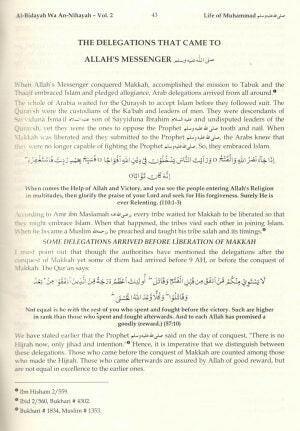 Al-Bidayah Wa An-Nihayah – Vol. 2 43 Life of Muhammad صلى الله عليه وسلم
THE DELEGATIONS THAT CAME TO
ALLAH'S MESSENGER صلى الله عليه وسلم
When Allah's Messenger conquered Makkah, accomplished the mission to Tabuk and the
Thaqif embraced Islam and pledged allegiance, Arab delegations arrived from all around.
The whole of Arabia waited for the Quraysh to accept Islam before they followed suit. The
Quraysh were the custodians of the Ka'bah and leaders of men. They were descendants of
Sayyiduna Isma'il عليه السلام son of Sayyiduna Ibrahim عليه السلام and undisputed leaders of the
Quraysh, yet they were the ones to oppose the Prophet صلى الله عليه وسلم tooth and nail. When
Makkah was liberated and they submitted to the Prophet صلى الله عليه وسلم, the Arabs knew that
they were no longer capable of fighting the Prophet صلى الله عليه وسلم. So, they embraced Islam.
إِذَا جَاءَ نَصْرُ اللهِ وَالْفَتْحُ وَرَأَيْتَ النَّاسَ يَدْخُلُونَ فِي دِينِ اللهِ أَفْوَاجًا فَسَبِّحْ بِحَمْدِ رَبِّكَ وَاسْتَغْفِرْهُ
إِنَّهُ كَانَ تَوَّابًا
When comes the Help of Allah and Victory, and you see the people entering Allah's Religion
in multitudes, then glorify the praise of your Lord and seek for His forgiveness. Surely He is
ever Relenting. (110:1-3)
According to Amr ibn Maslamah every tribe waited for Makkah to be liberated so that
they might embrace Islam. When that happened, the tribes vied each other in joining Islam.
When he became a Muslim he preached and taught his tribe salah and its timings.
SOME DELEGATIONS ARRIVED BEFORE LIBERATION OF MAKKAH
I must point out that though the authorities have mentioned the delegations after the
conquest of Makkah yet some of them had arrived before 9 AH, or before the conquest of
Makkah. The Qur'an says:
لَا يَسْتَوِي مِنْكُمْ مَنْ أَنْفَقَ مِنْ قَبْلِ الْفَتْحِ وَقَاتَلَ أُولَئِكَ أَعْظَمُ دَرَجَةً مِنَ الَّذِينَ أَنْفَقُوا مِنْ بَعْدُ
وَقَاتَلُوا وَكُلًّا وَعَدَ اللهُ الْحُسْنَى
Not equal is he with the rest of you who spent and fought before the victory. Such are higher
in rank than those who spent and fought afterwards. And to each Allah has promised a
goodly reward.) (57:10)
We have stated earlier that the Prophet صلى الله عليه وسلم said on the day of conquest, "There is no
Hijrah now, only jihad and intention." Hence, it is imperative that we distinguish between
these delegations. Those who came before the conquest of Makkah are counted among those
who made the Hijrah. Those who came afterwards are assured by Allah of good reward, but
are not equal in excellence to the earlier ones.
Ibn Hisham 2/559.
Ibid 2/560, Bukhari # 4302.
Bukhari # 1834, Muslim # 1353.